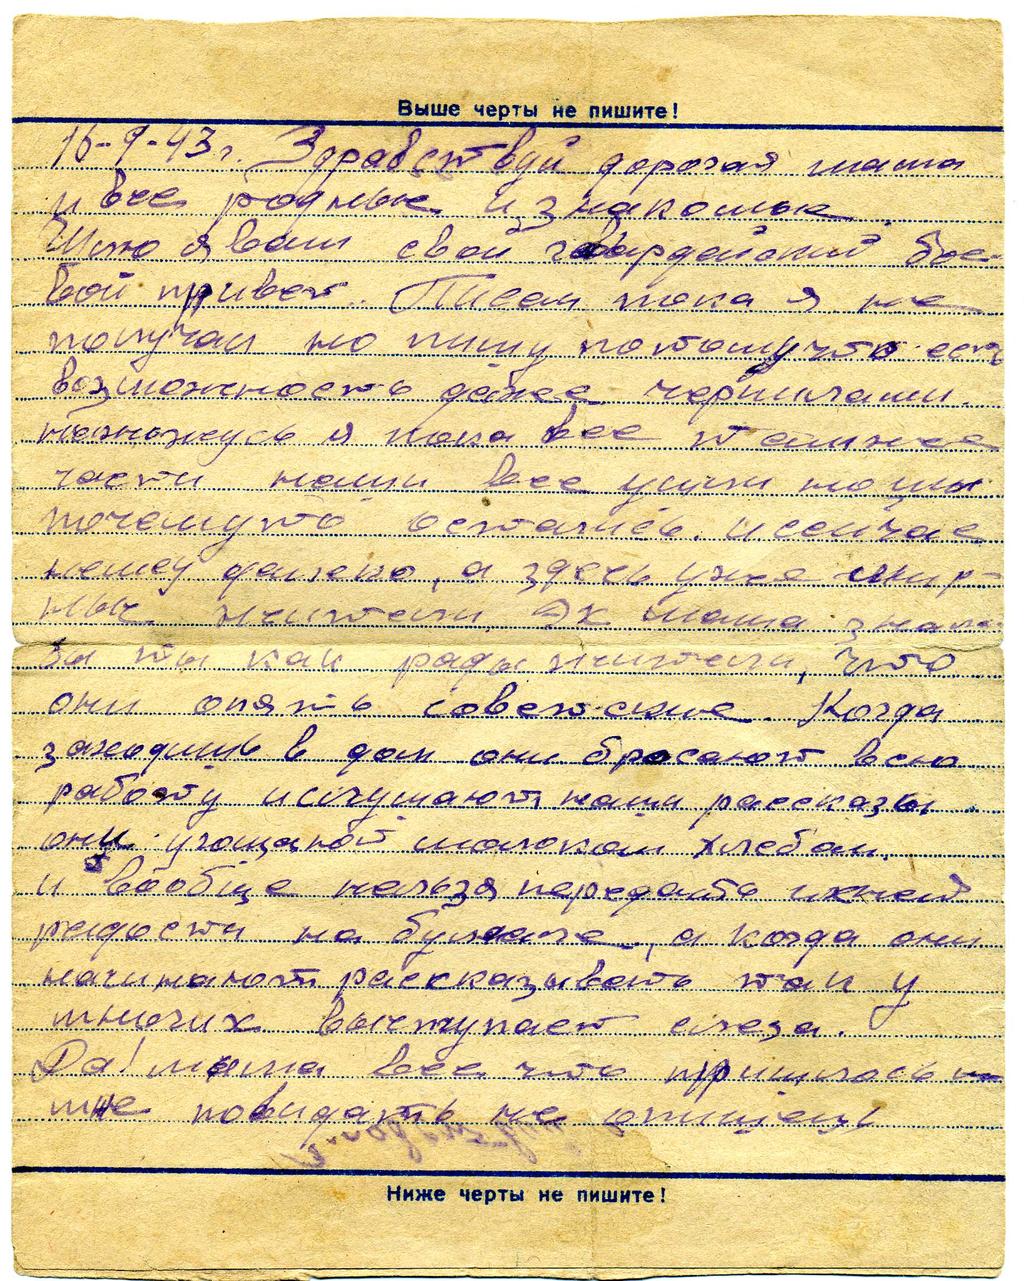 Выше черты не пишите!
16-9-43г. Здравствуй дорогая мама
и все родные и знакомые
Шлю я вам свой гвардейский бое-
вой привет. Писем пока я не
получал но пишу потомучто есть
возможность даже чернилами.
нахожусь я пока все там же
части наши все ушли но мы
почемуто остались. и сейчас
немец далеко, а здесь уже мир-
ные жители. Эх мама знала
ты как рады жители, что
они опять советские. Когда
заходишь в дом они бросают всю
работу и слушают наши рассказы
они угощают молоком хлебом.
и вообще нельзя передать ихней
радости на бумаге, а когда они
начинают рассказывать так у
многих выступает слеза.
Да! мама все что пришлось
мне повидать не опишешь
Ниже черты не пишите!